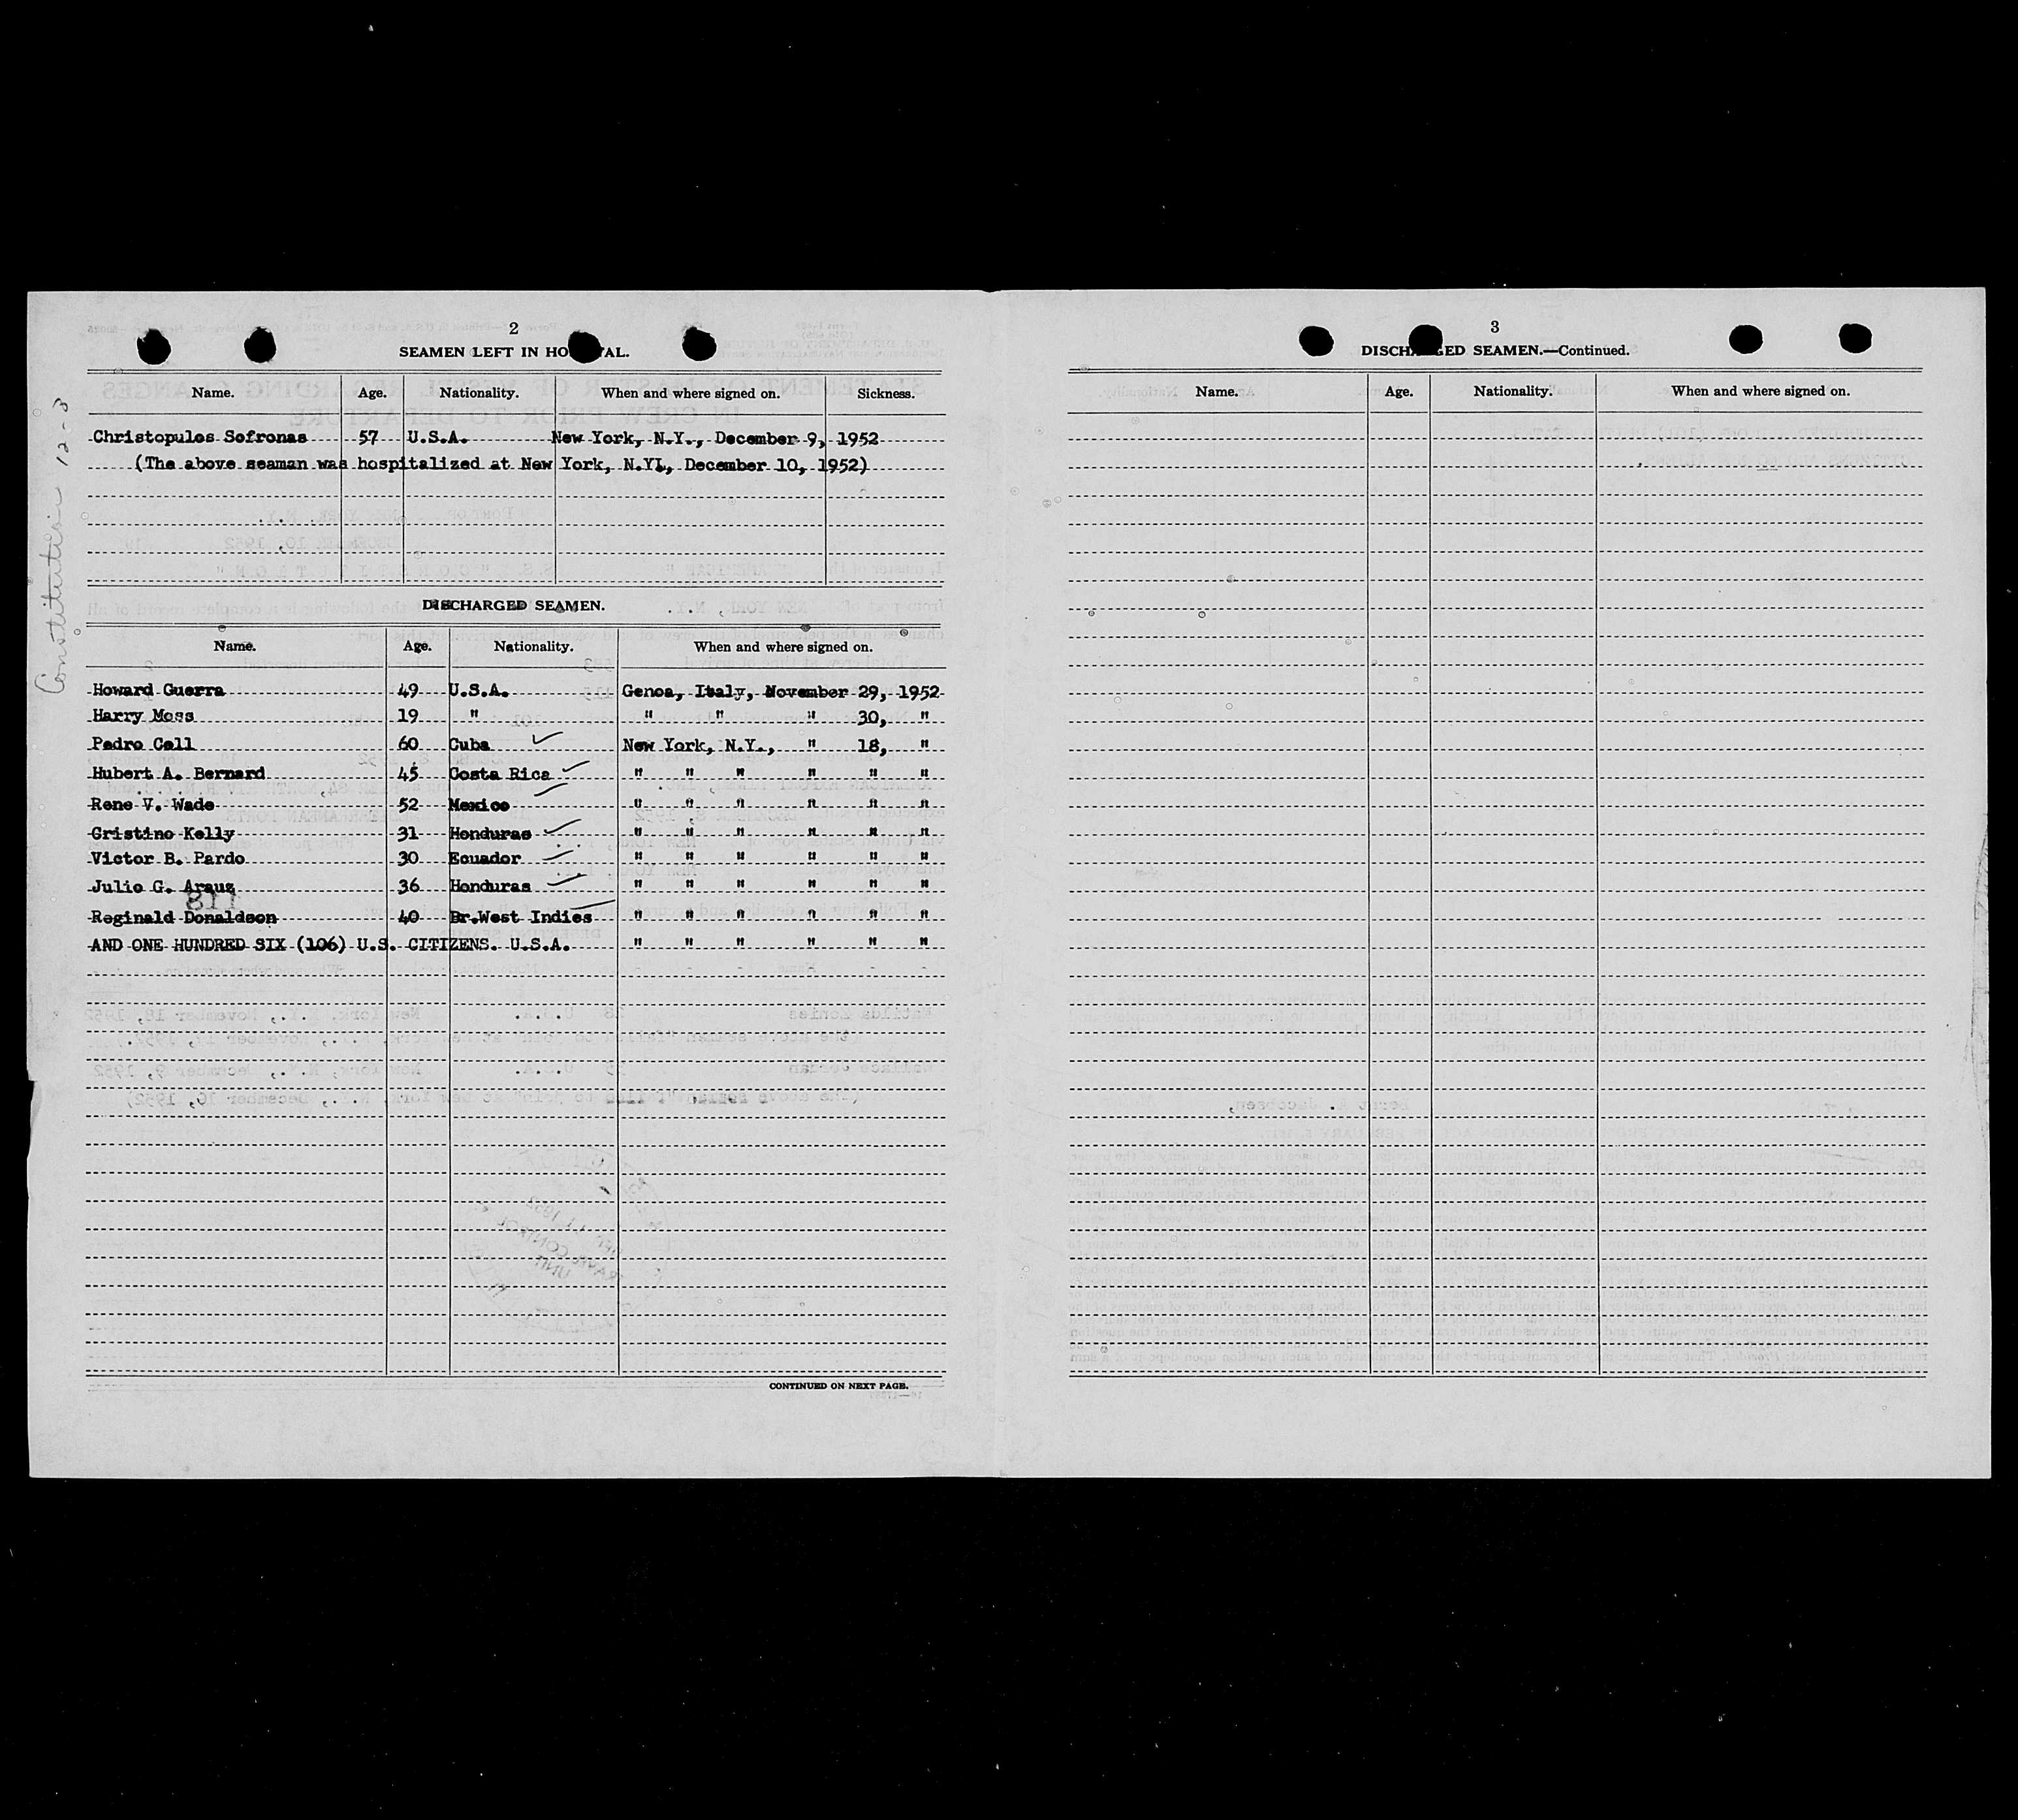 2
SEAMEN LEFT IN HO TAL.
Name. Age. Nationality. When and where signed on. Sickness.
Christopulos Sofronas 57 U.S.A. New York, N.Y., December 9, 1952
(The above seaman was hospitalized at New York, N.Y., December 10, 1952)
DISCHARGED SEAMEN.
Name. Age. Nationality. When and where signed on.
Howard Guerra 49 U.S.A. Genoa, Italy, November 29, 1952
Harry Moss 19 " " " " 30, "
Pedro Coll 60 Cuba New York, N.Y., " 18, "
Hubert A. Bernard 45 Costa Rica " " " " " "
Rene V. Wade 52 Mexico " " " " " "
Cristino Kelly 31 Honduras " " " " " "
Victor B. Pardo 30 Ecuador " " " " " "
Julio G. Arauz 36 Honduras " " " " " "
118
Reginald Donaldson 40 Br.West Indies " " " " " "
AND ONE HUNDRED SIX (106) U.S. CITIZENS. U.S.A. " " " " " "
CONTINUED ON NEXT PAGE.
Constitution 12-3
3
DISCH GED SEAMEN.—Continued.
Name. Age. Nationality. When and where signed on.